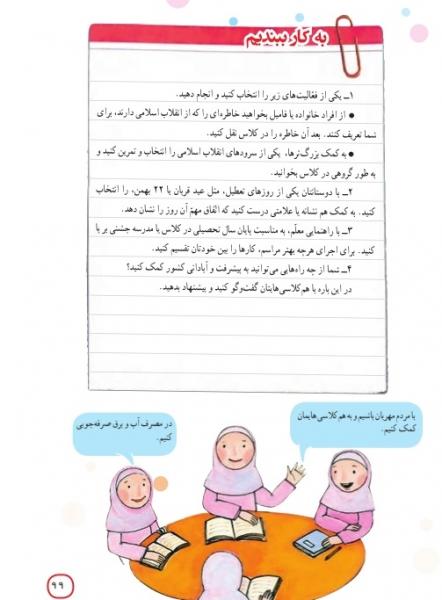 به کار ببندیم
۱ــ یکی از فعّالیت‌های زیر را انتخاب کنید و انجام دهید.
● از افراد خانواده یا فامیل بخواهید خاطره‌ای را که از انقلاب اسلامی دارند، برای
شما تعریف کنند. بعد آن خاطره را در کلاس نقل کنید.
● به کمک بزرگ‌ترها، یکی از سرودهای انقلاب اسلامی را انتخاب و تمرین کنید و
به طور گروهی در کلاس بخوانید.
۲ــ با دوستانتان یکی از روزهای تعطیل، مثل عید قربان یا ۲۲ بهمن، را انتخاب
کنید. به کمک هم نشانه یا علامتی درست کنید که اتّفاق مهمّ آن روز را نشان دهد.
۳ــ با راهنمایی معلّم، به مناسبت پایان سال تحصیلی در کلاس یا مدرسه جشنی بر پا
کنید. برای اجرای هرچه بهتر مراسم، کارها را بین خودتان تقسیم کنید.
۴ــ شما از چه راه‌هایی می‌توانید به پیشرفت و آبادانی کشور کمک کنید؟
در این باره با هم‌کلاسی‌هایتان گفت‌وگو کنید و پیشنهاد بدهید.
با مردم مهربان باشیم و به هم‌کلاسی‌هایمان
کمک کنیم.
در مصرف آب و برق صرفه‌جویی
کنیم.
۹۹